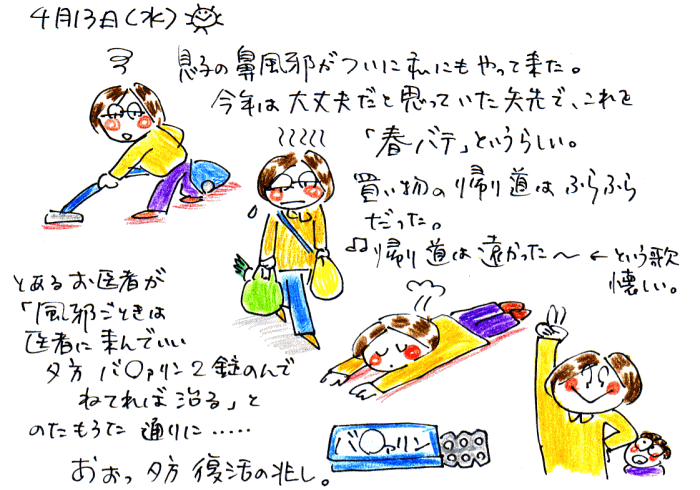 4月13日(水)
息子の鼻風邪がついに私にもやって来た。
今年は大丈夫だと思っていた矢先で、これを
「春バテ」というらしい。
買い物の帰り道はふらふら
だった。
♫帰り道は遠かった〜 ←という歌
懐しい。
とあるお医者が
「風邪ごときは
医者に来んでいい
夕方 バ〇ァリン2錠のんで
ねてれば治る」と
のたもうた 通りに……
おおっ夕方 復活の兆し。
バ〇ァリン